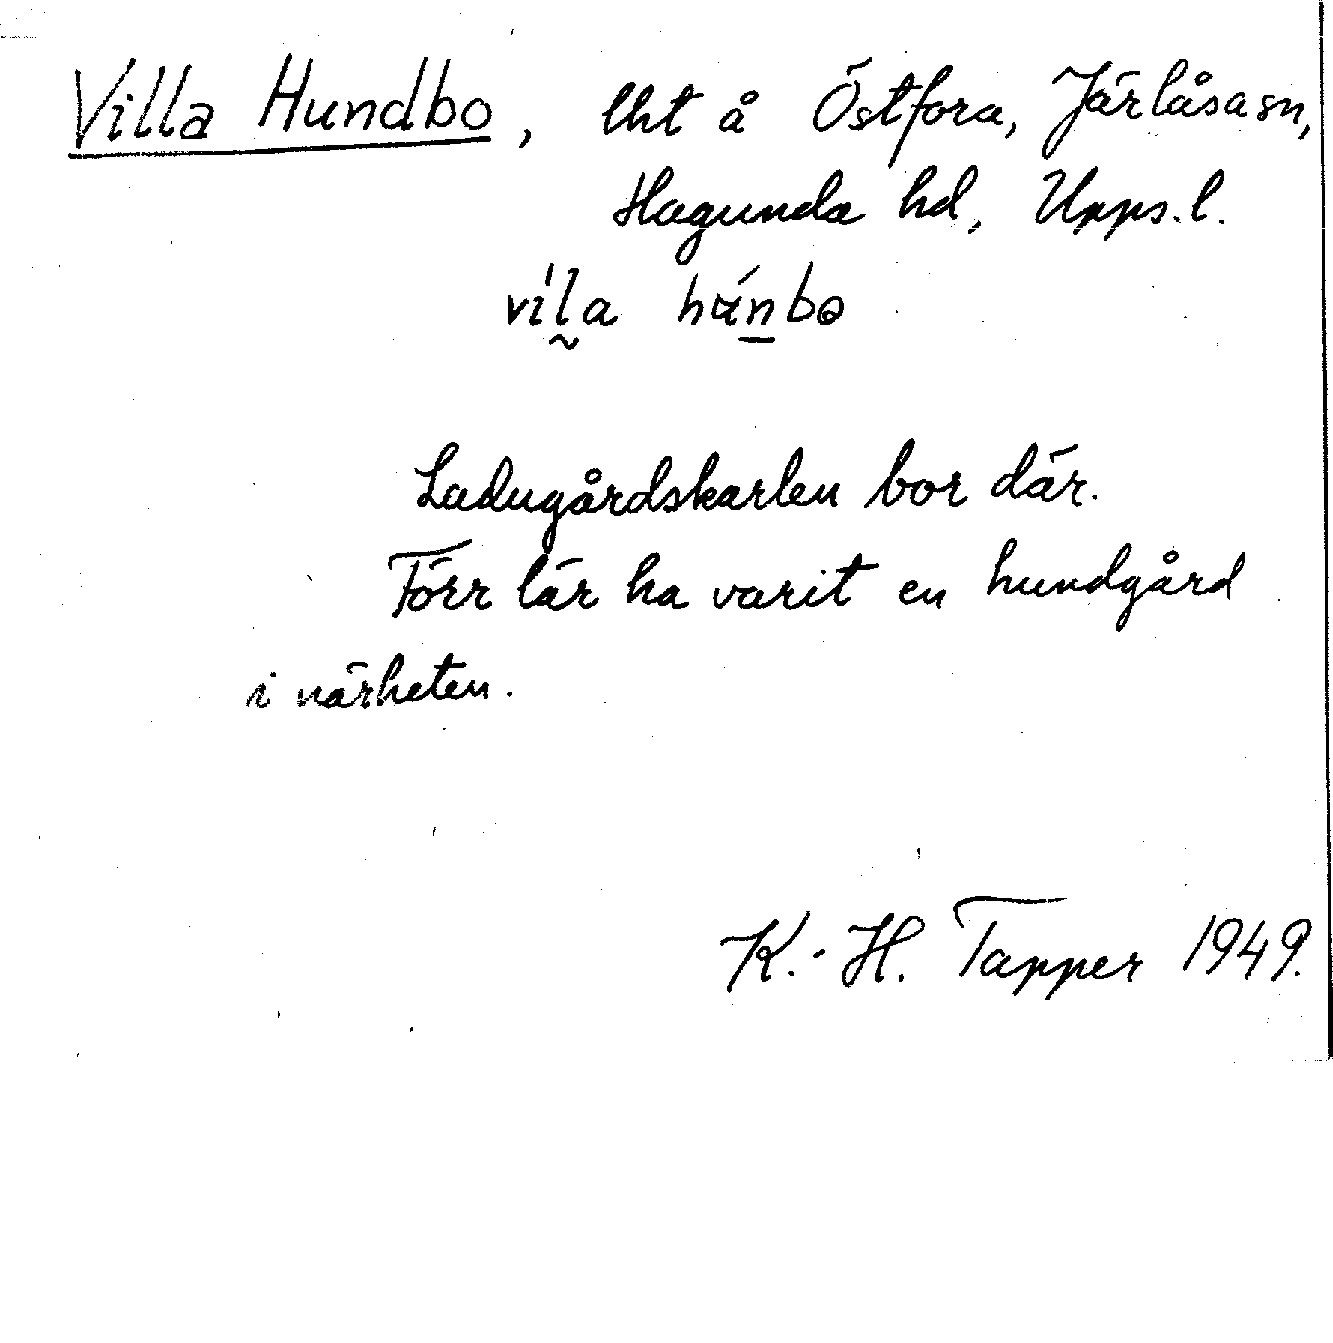 Villa Hundbo, lht å Östfora, Järlåsa sn,
Hagunda hd, Upps. l.
vila
Ladugårdskarlen bor där.
Förr lär ha varit en hundgård
i närheten.
K.-H. Tapper 1949.